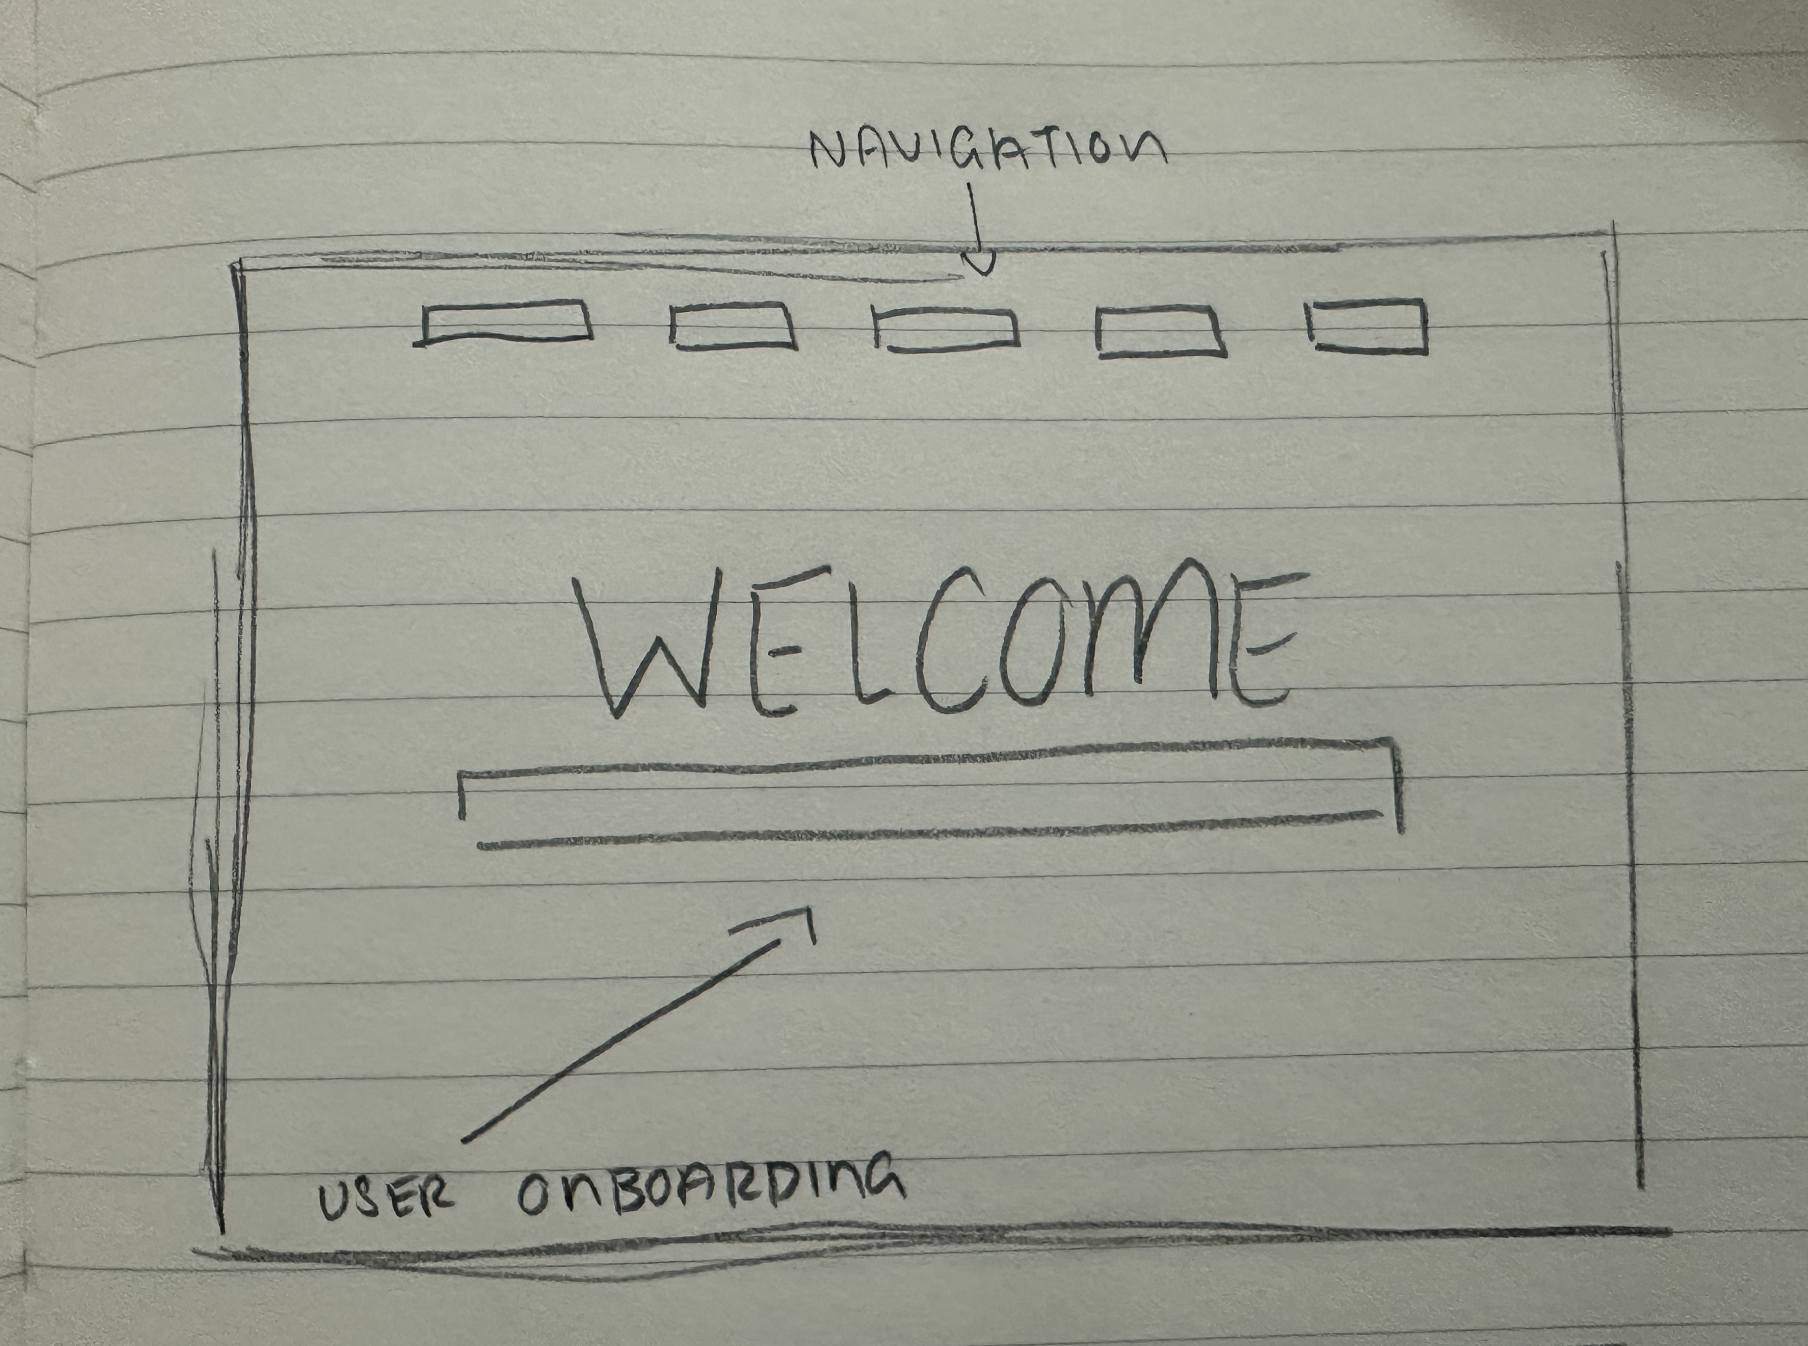 NAVIGATION
WELCOME
USER ONBOARDING